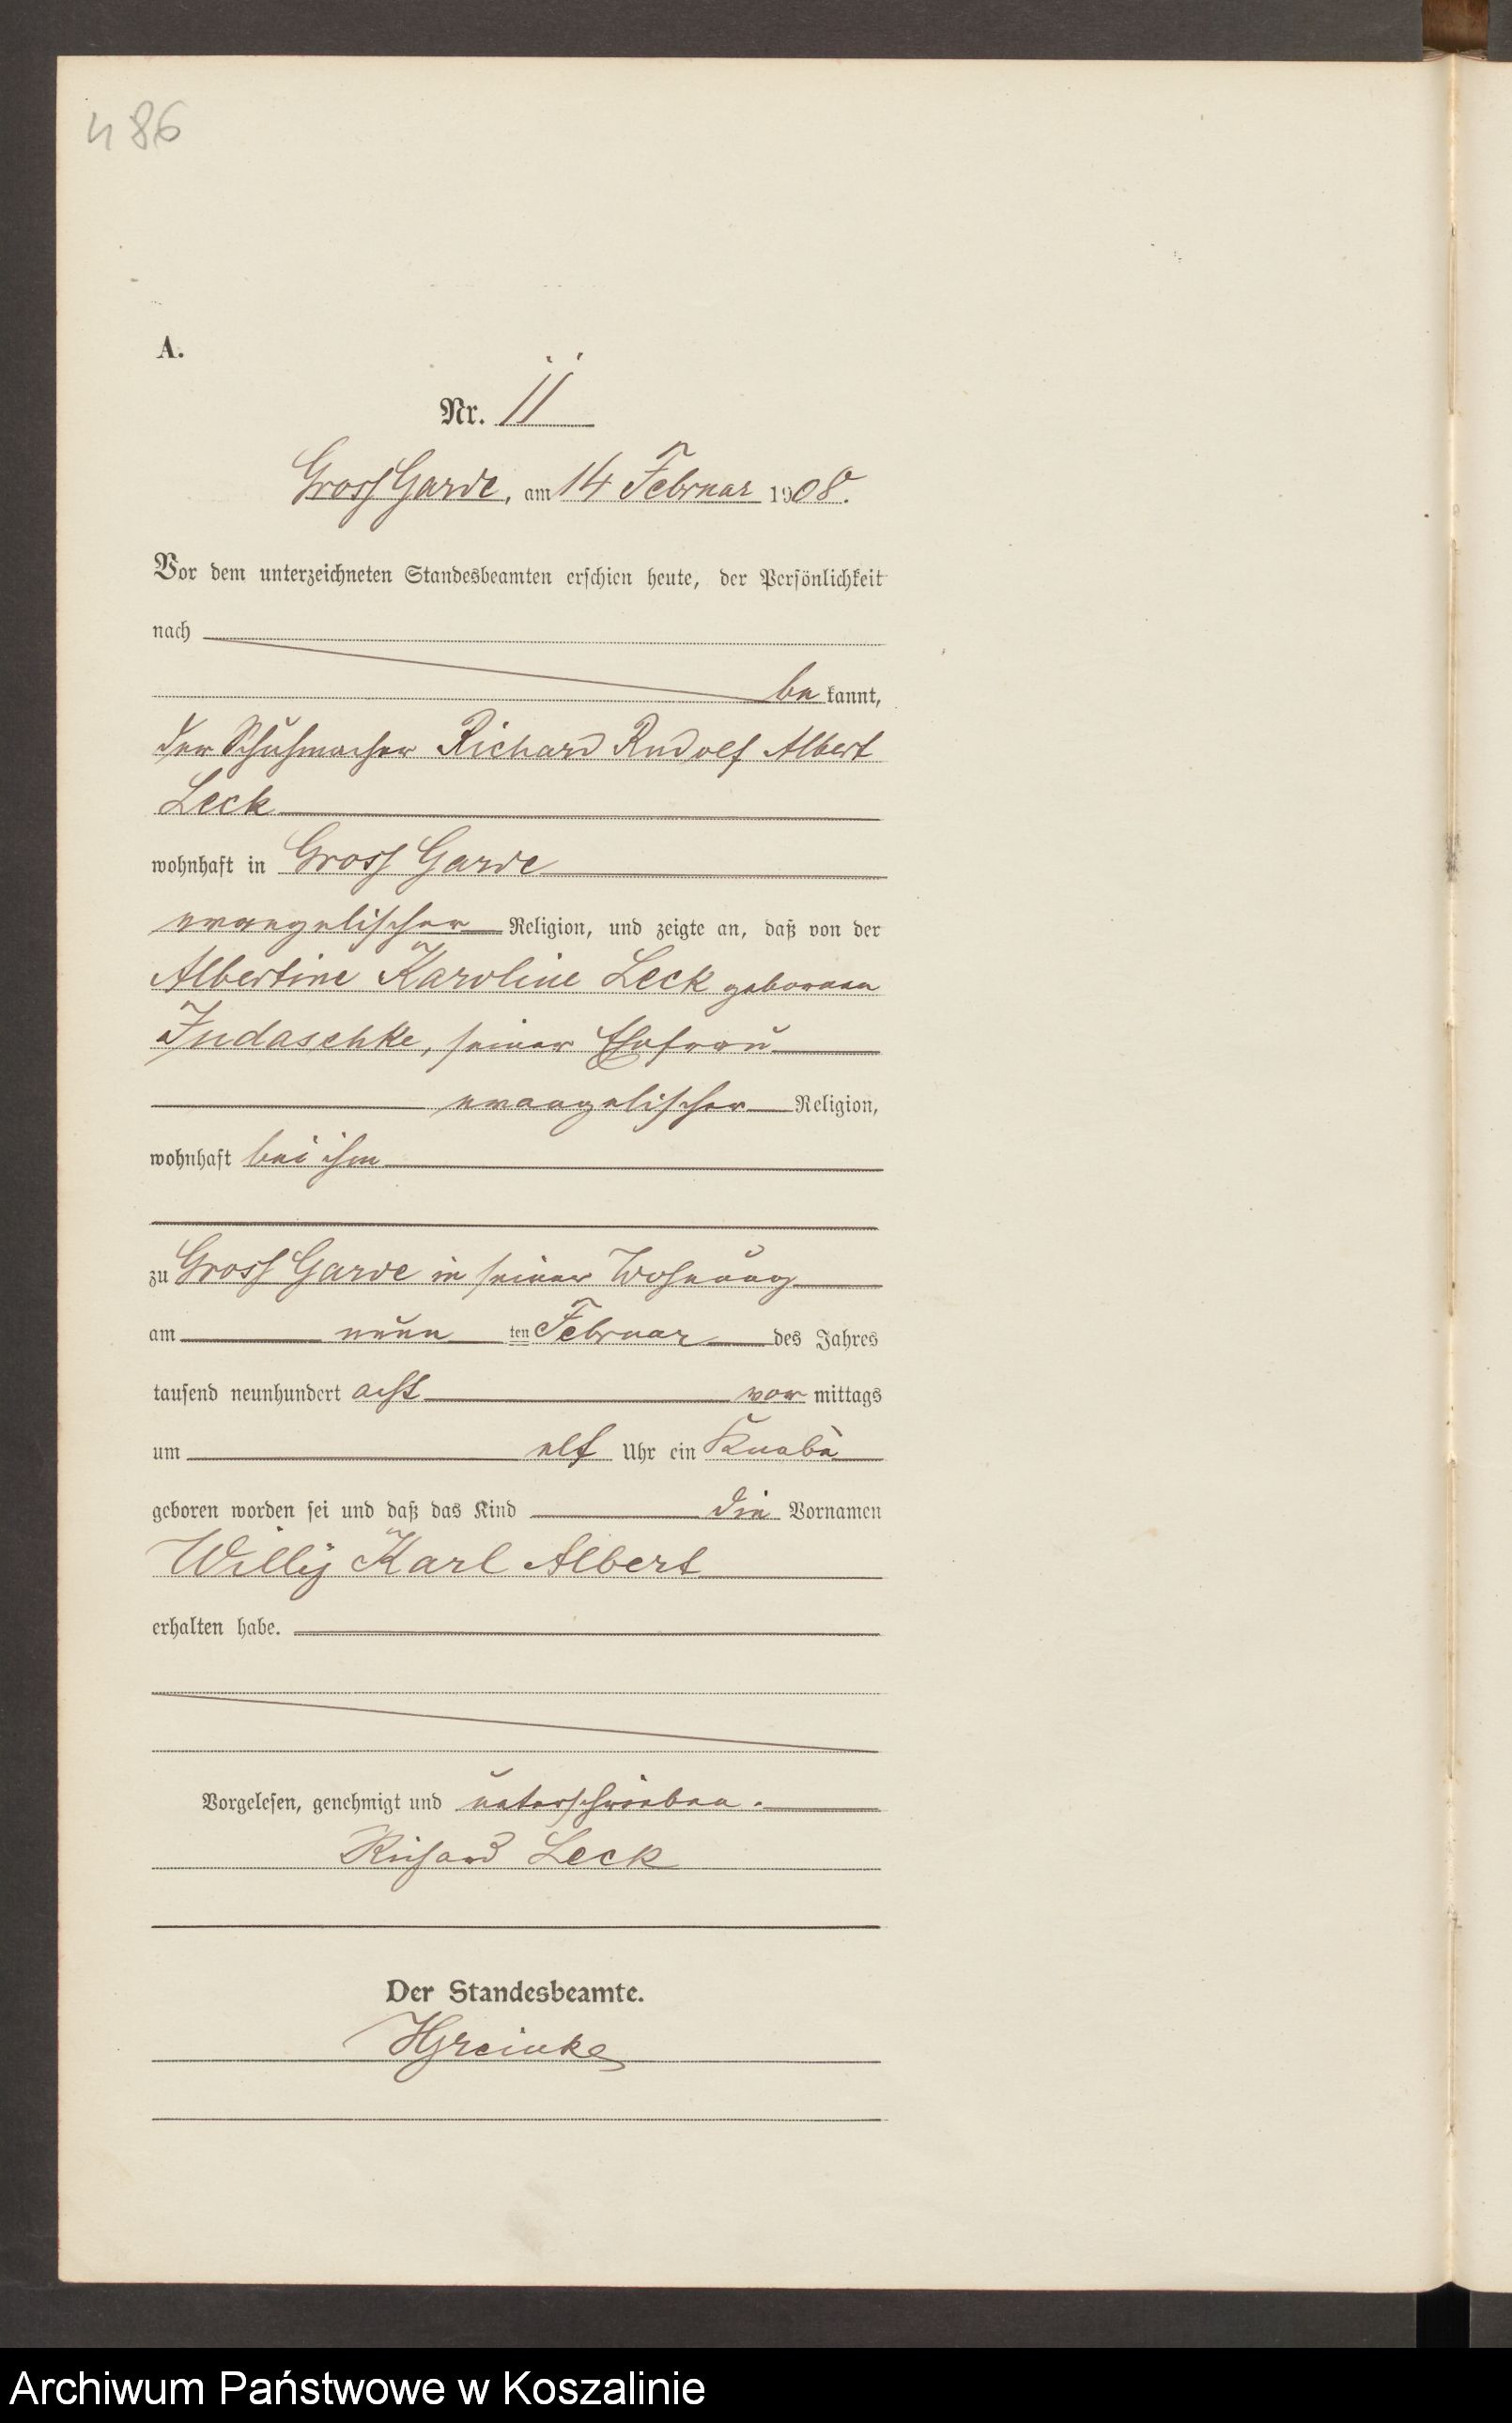 486
A.
Nr. 11
Gross Garde, am 14 Februar 1908.
Vor dem unterzeichneten Standesbeamten erschien heute, der Persönlichkeit
nach
be kannt,
der Schuhmacher Richard Rudolf Albert
Leck
wohnhaft in Gross Garde
evangelischer Religion, und zeigte an, daß von der
Albertine Karoline Leck geborenen
Judaschke, seiner Ehefrau
evangelischer Religion,
wohnhaft bei ihm
zu Gross Garde in seiner Wohnung
am neun ten Februar des Jahres
tausend neunhundert acht vor mittags
um elf Uhr ein Knabe
geboren worden sei und daß das Kind die Vornamen
Willy Karl Albert
erhalten habe.
Vorgelesen, genehmigt und unterschrieben.
Richard Leck
Der Standesbeamte.
Archiwum Państwowe w Koszalinie